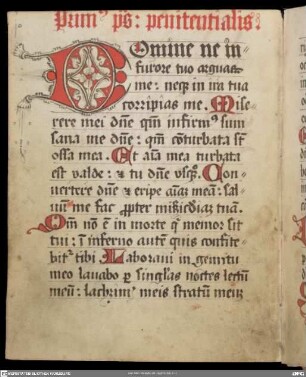 Prim⁹ p̄s: penitentialis.
Domine ne in
furore tuo arguas
me: neq₃ in ira tua
corripias me. Mise
rere mei dn̄e qm̄ infirm⁹ sum
sana me dn̄e: qm̄ cōturbata sūt
ossa mea. Et aīa mea turbata
est valde: & tu dn̄e vsq₃. Con
uertere dn̄e & eripe aīaꝫ meā: sal
uū me fac ꝓpter mīsicōdiaꝫ tuā.
Qm̄ nō ē in morte q̇ memor sit
tui: ī inferno autē quis confite
bit᷑ tibi Laboraui in gemitu
meo lauabo ꝑ singłas noctes lectū
meū: lachrim⁹ meis stratum meuꝫ